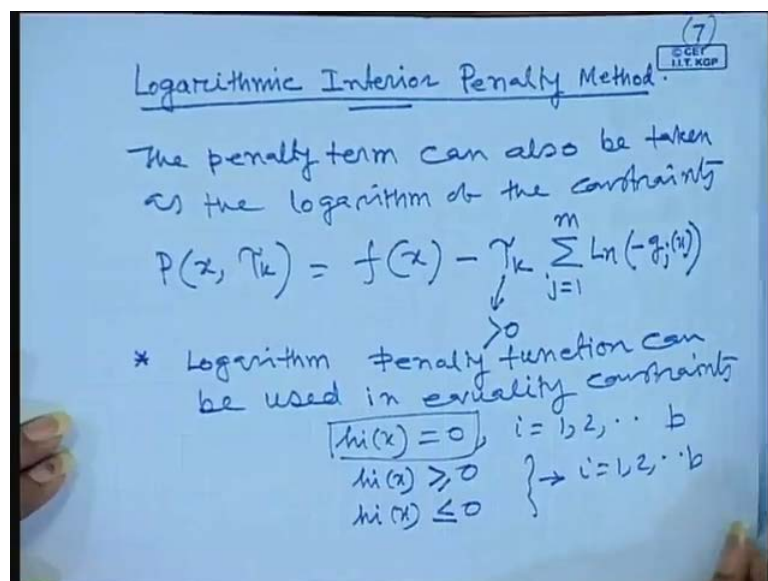 (7)
© CET
I.I.T. KGP
Logarithmic Interior Penalty Method.
The penalty term can also be taken
as the logarithm of the constraints
P(x, τk) = f(x) - τk Σ Ln(-gj(x))
m
j=1
>0
* Logarithm penalty function can
be used in equality constraints
hi(x) = 0, i = 1, 2, ·· b
hi(x) ≥ 0
hi(x) ≤ 0 } → i = 1, 2, ·· b